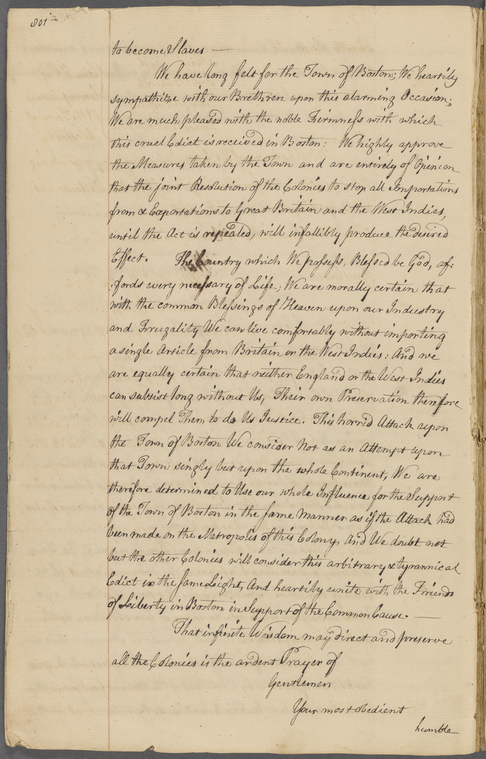 801
to become Slaves —
We have long felt for the Town of Boston; We heartily
sympathize with our Brethren upon this alarming Occasion;
We are much pleased with the noble Firmness with which
this cruel Edict is received in Boston: We highly approve
the Measures taken by the Town and are entirely of Opinion
that the joint Resolution of the Colonies to stop all Importations
from & Exportations to Great Britain and the West Indies,
until the Act is repealed, will infallibly produce the desired
Effect. The Country which We possess, Blessed be God, af-
fords every necessary of Life; We are morally certain that
with the common Blessings of Heaven upon our Industry
and Frugality We can live comfortably without importing
a single Article from Britain or the West Indies: And we
are equally certain that neither England or the West Indies
can subsist long without Us, Their own Preservation therefore
will compel Them to do Us Justice. This horrid Attack upon
the Town of Boston We consider not as an Attempt upon
that Town singly but upon the whole Continent, We are
therefore determined to Use our whole Influence for the Support
of the Town of Boston in the same Manner as if the Attack had
been made on the Metropolis of this Colony, And We doubt not
but the other Colonies will consider this arbitrary & tyrannical
Edict in the same Light, And heartily unite with the Friends
of Liberty in Boston in Support of the Common Cause. —
That infinite Wisdom may direct and preserve
all the Colonies is the ardent Prayer of
Gentlemen
Your most obedient
humble